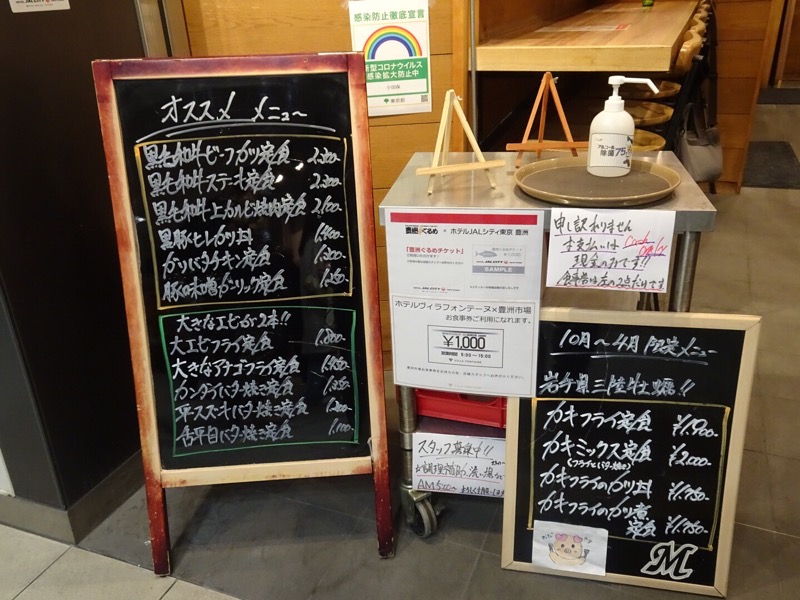 オススメ メニュー
黒毛和牛ビーフカツ定食 2,200-
黒毛和牛ステーキ定食 2,200-
黒毛和牛上カルビ焼肉定食 2,100-
黒豚ヒレカツ丼 1,400-
カツバタチキン定食 1,200-
豚味噌ガーリック定食 1,250
大きなエビが2本!!
大エビフライ定食 1,800-
大きなアナゴフライ定食
カンダイバタ焼き定食
平スズキバタ焼き定食
舌平目バタ焼き定食 1,100-
感染防止徹底宣言
新型コロナウイルス
感染拡大防止中
東京都
ぐるめ × ホテルJALシティ東京 豊洲
「豊洲ぐるめチケット」
SAMPLE
ホテルヴィラフォンテーヌ×豊洲市場
お食事券ご利用になれます。
¥1,000
除菌 75
申し訳ありません
支払いは Cash only
現金のみです!!
スタッフ募集中!!
AM5:00~
10月~4月 限定メニュー
岩手県三陸牡蠣!!
カキフライ定食 ¥1,900
カキミックス定食 ¥2,000
カキフライのカツ丼 ¥1,750
カキフライのカツ煮
定食 ¥1,750
M